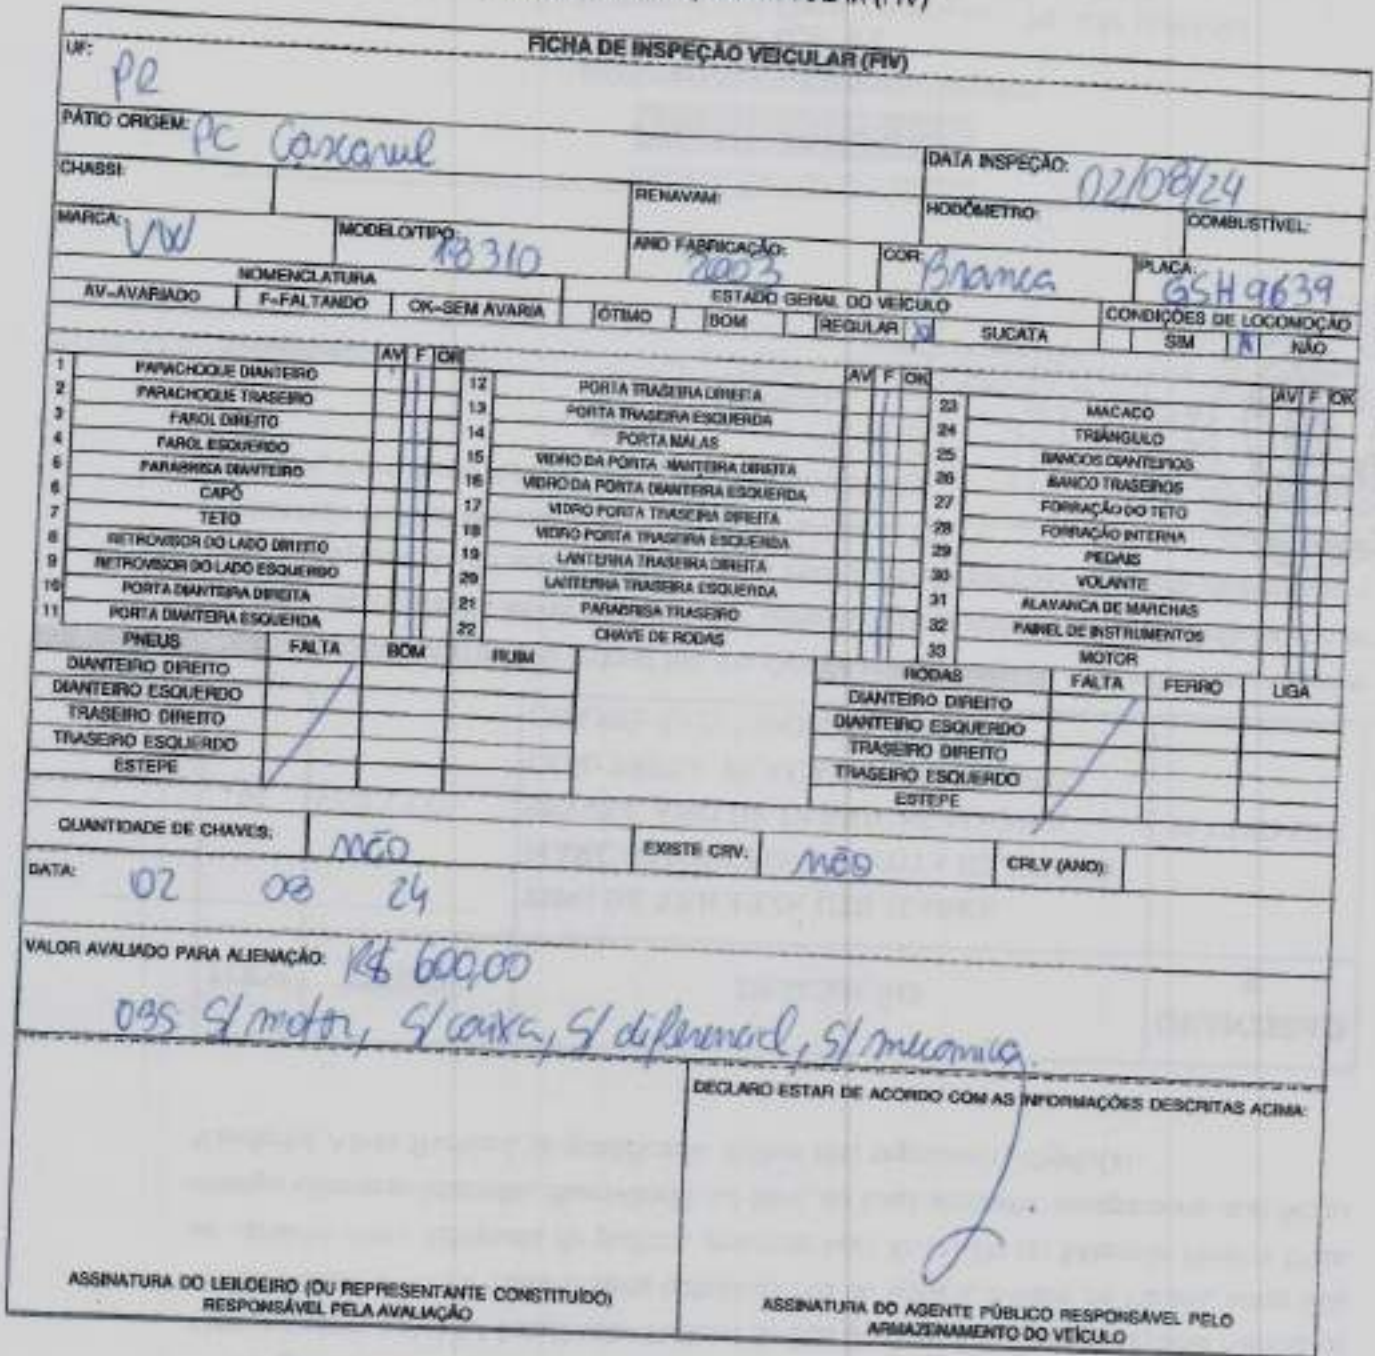 FICHA DE INSPEÇÃO VEICULAR (FIV)
UF: PR
PÁTIO ORIGEM: PC Cascavel
DATA INSPEÇÃO: 02/08/24
CHASSI:
RENAVAM:
HODÔMETRO:
COMBUSTÍVEL:
MARCA: VW
MODELO/TIPO: 18310
ANO FABRICAÇÃO: 2003
COR: Branca
PLACA: GSH 9639
NOMENCLATURA
ESTADO GERAL DO VEÍCULO
CONDIÇÕES DE LOCOMOÇÃO
AV=AVARIADO F=FALTANDO OK=SEM AVARIA ÓTIMO BOM REGULAR X SUCATA SIM X NÃO
AV F OK
1 PARACHOQUE DIANTEIRO
2 PARACHOQUE TRASEIRO
3 FAROL DIREITO
4 FAROL ESQUERDO
5 PARABRISA DIANTEIRO
6 CAPÔ
7 TETO
8 RETROVISOR DO LADO DIREITO
9 RETROVISOR DO LADO ESQUERDO
10 PORTA DIANTEIRA DIREITA
11 PORTA DIANTEIRA ESQUERDA
AV F OK
12 PORTA TRASEIRA DIREITA
13 PORTA TRASEIRA ESQUERDA
14 PORTA MALAS
15 VIDRO DA PORTA DIANTEIRA DIREITA
16 VIDRO DA PORTA DIANTEIRA ESQUERDA
17 VIDRO PORTA TRASEIRA DIREITA
18 VIDRO PORTA TRASEIRA ESQUERDA
19 LANTERNA TRASEIRA DIREITA
20 LANTERNA TRASEIRA ESQUERDA
21 PARABRISA TRASEIRO
22 CHAVE DE RODAS
AV F OK
23 MACACO
24 TRIÂNGULO
25 BANCOS DIANTEIROS
26 BANCO TRASEIROS
27 FORRAÇÃO DO TETO
28 FORRAÇÃO INTERNA
29 PEDAIS
30 VOLANTE
31 ALAVANCA DE MARCHAS
32 PAINEL DE INSTRUMENTOS
33 MOTOR
PNEUS FALTA BOM RUIM
DIANTEIRO DIREITO
DIANTEIRO ESQUERDO
TRASEIRO DIREITO
TRASEIRO ESQUERDO
ESTEPE
RODAS FALTA FERRO LIGA
DIANTEIRO DIREITO
DIANTEIRO ESQUERDO
TRASEIRO DIREITO
TRASEIRO ESQUERDO
ESTEPE
QUANTIDADE DE CHAVES: NÃO EXISTE CRV: NÃO CRLV (ANO):
DATA: 02 08 24
VALOR AVALIADO PARA ALIENAÇÃO: R$ 600,00
OBS S/ motor, S/ caixa, S/ diferencial, S/ mecanica.
DECLARO ESTAR DE ACORDO COM AS INFORMAÇÕES DESCRITAS ACIMA:
ASSINATURA DO LEILOEIRO (OU REPRESENTANTE CONSTITUÍDO)
RESPONSÁVEL PELA AVALIAÇÃO
ASSINATURA DO AGENTE PÚBLICO RESPONSÁVEL PELO
ARMAZENAMENTO DO VEÍCULO